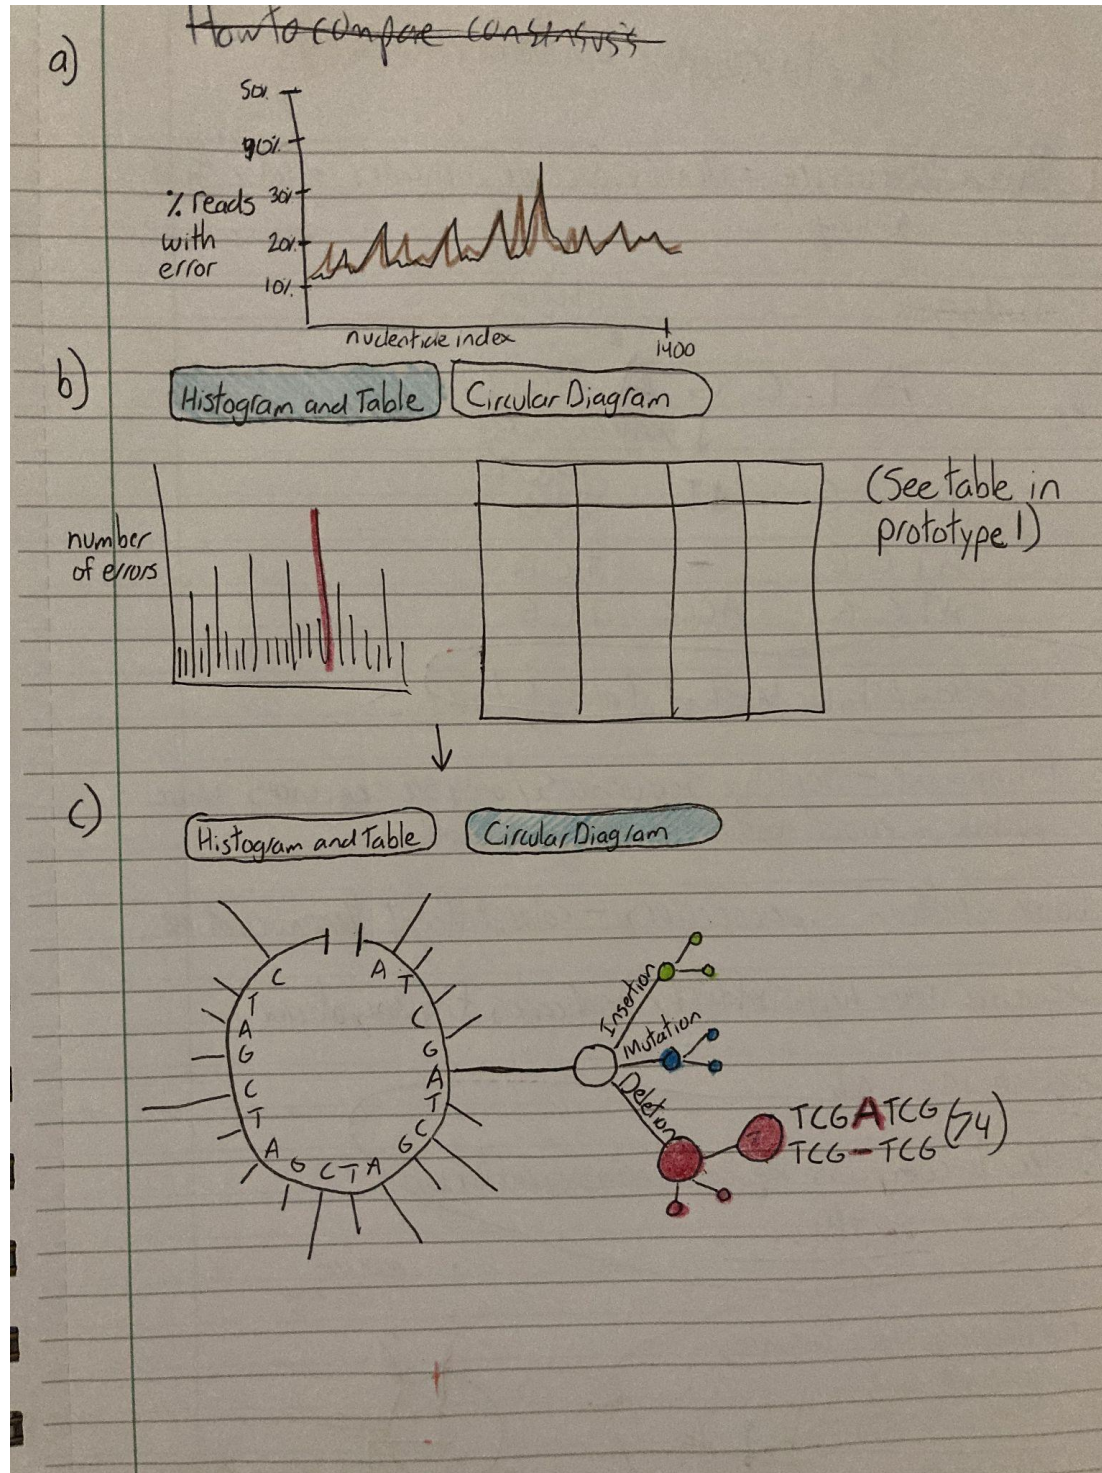 How to compae consensus's
a)
50%
40%
30%
20%
10%
% reads
with
error
nucleotide index
1400
b)
Histogram and Table
Circular Diagram
number
of errors
(See table in
prototype 1)
c)
Histogram and Table
Circular Diagram
A T C G A T C G A T C G A T C G A T C
Insertion
Mutation
Deletion
TCGATCG
TCG-TCG